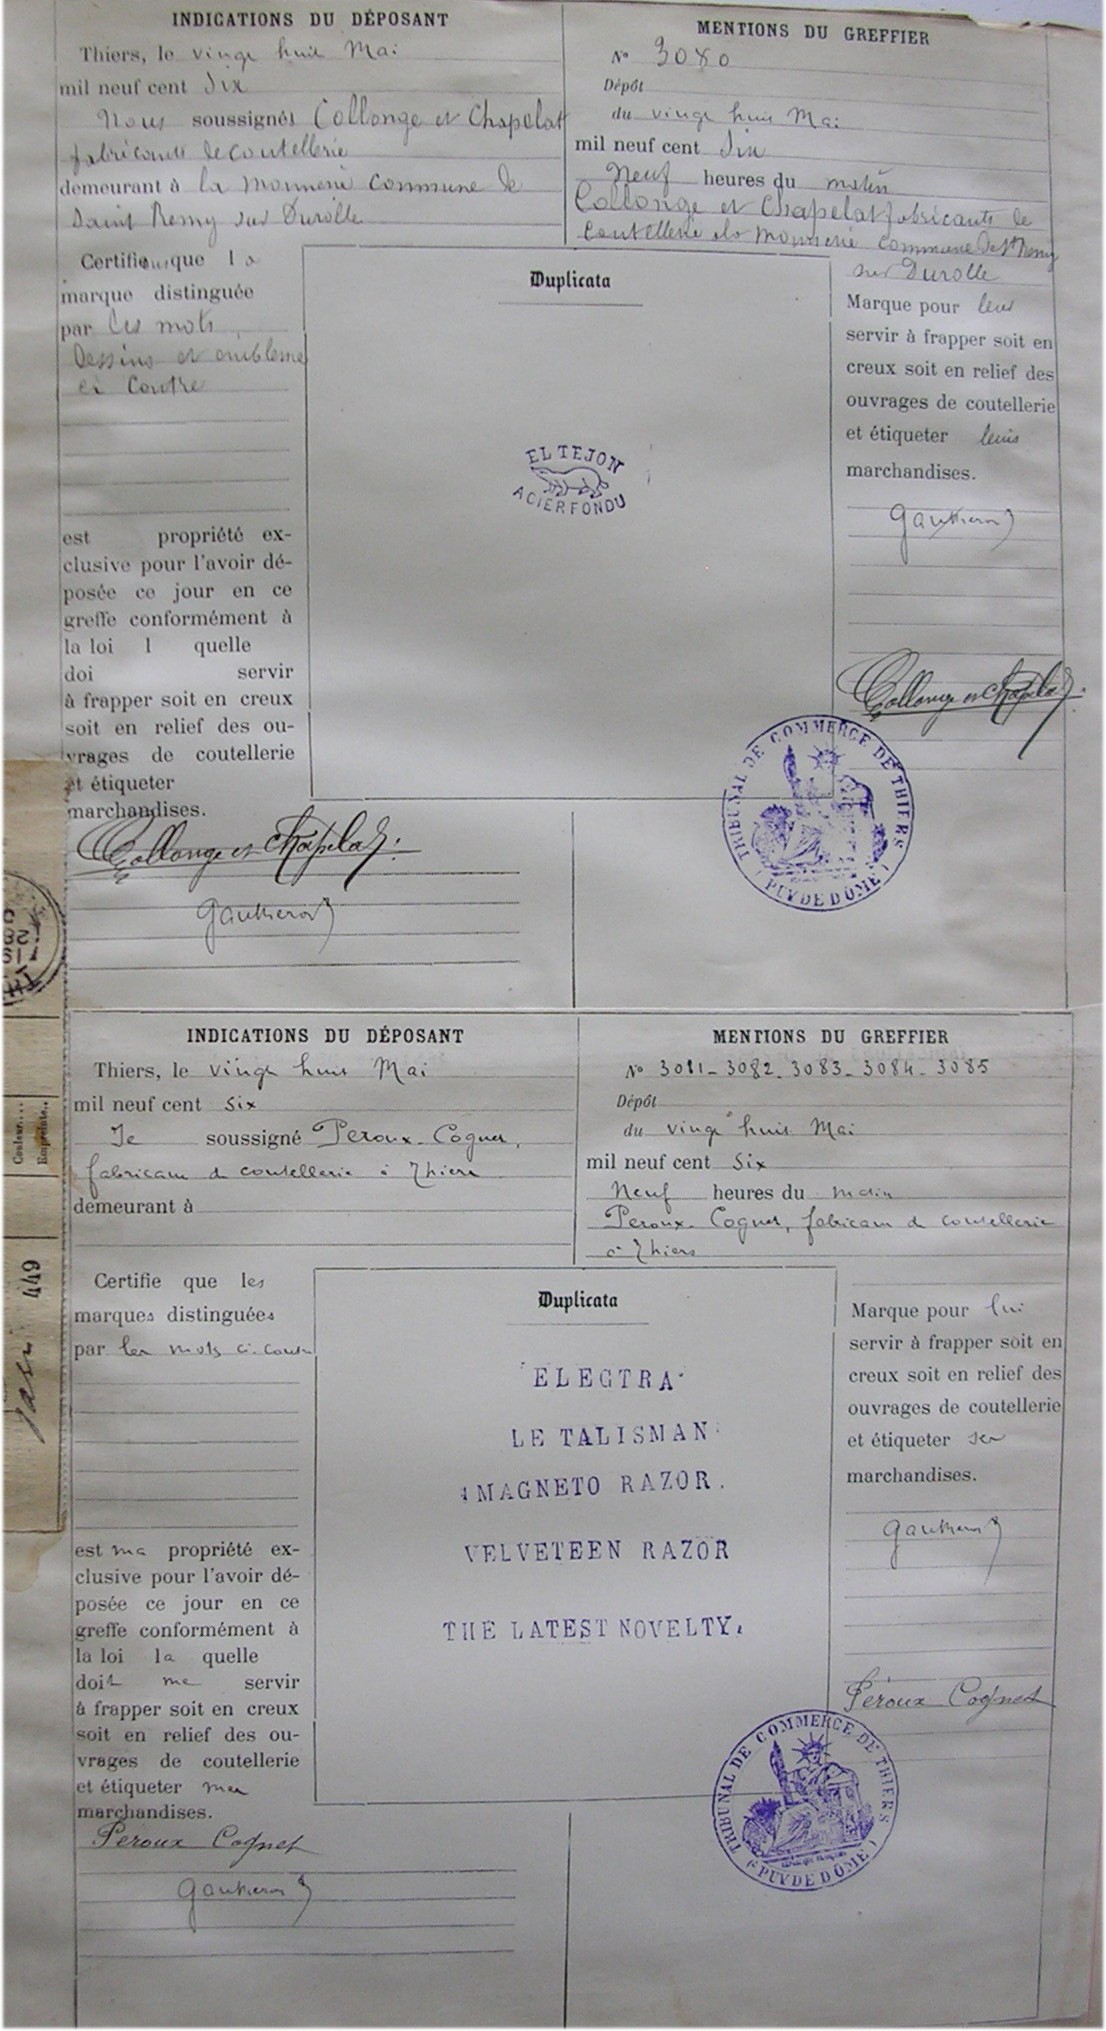 INDICATIONS DU DÉPOSANT
Thiers, le vingt huit Mai
mil neuf cent Six
Nous soussignés Collonge et Chapelat
fabricants de coutellerie
demeurant à la Monnerie commune de
Saint Remy sur Durolle
Certifions que la
marque distinguée
par les mots
dessins et emblème
ci contre
est propriété ex-
clusive pour l'avoir dé-
posée ce jour en ce
greffe conformément à
la loi l quelle
doi servir
à frapper soit en creux
soit en relief des ou-
vrages de coutellerie
et étiqueter
marchandises.
Collonge et Chapelat
MENTIONS DU GREFFIER
No 3080
Dépôt
du vingt huit Mai
mil neuf cent Six
Neuf heures du matin
Collonge et Chapelat fabricants de
coutellerie à la Monnerie commune de St Remy
sur Durolle
Marque pour leur
servir à frapper soit en
creux soit en relief des
ouvrages de coutellerie
et étiqueter leurs
marchandises.
Collonge et Chapelat
Duplicata
EL TEJON
ACIER FONDU
TRIBUNAL DE COMMERCE DE THIERS
(PUY DE DÔME)
Couleur....
Empreinte..
449
INDICATIONS DU DÉPOSANT
Thiers, le vingt huit Mai
mil neuf cent Six
Je soussigné Peroux-Cognet,
fabricant de coutellerie à Thiers
demeurant à
Certifie que les
marques distinguées
par les mots ci-contre
est ma propriété ex-
clusive pour l'avoir dé-
posée ce jour en ce
greffe conformément à
la loi la quelle
doit me servir
à frapper soit en creux
soit en relief des ou-
vrages de coutellerie
et étiqueter mes
marchandises.
Peroux Cognet
MENTIONS DU GREFFIER
No 3081-3082-3083-3084-3085
Dépôt
du vingt huit Mai
mil neuf cent Six
Neuf heures du matin
Peroux-Cognet, fabricant de coutellerie
à Thiers
Marque pour lui
servir à frapper soit en
creux soit en relief des
ouvrages de coutellerie
et étiqueter ses
marchandises.
Péroux Cognet
Duplicata
ELECTRA
LE TALISMAN
MAGNETO RAZOR.
VELVETEEN RAZOR
THE LATEST NOVELTY.
TRIBUNAL DE COMMERCE DE THIERS
(PUY DE DÔME)